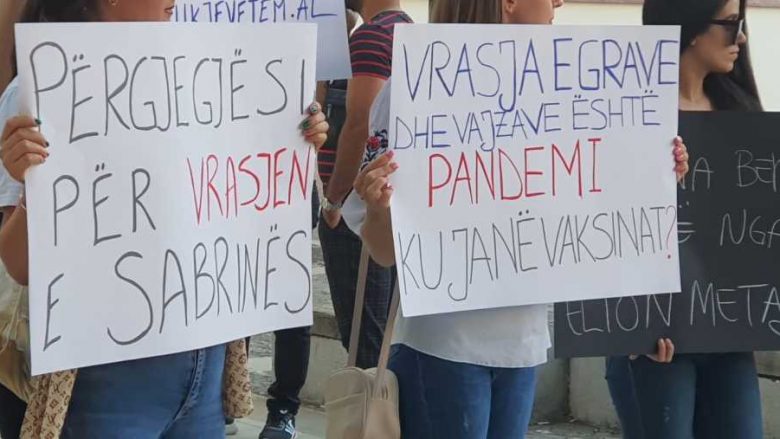 UKJEVETEM.AL
PËRGJEGJËSI
PËR VRASJEN
E SABRINËS
VRASJA E GRAVE
DHE VAJZAVE ËSHTË
PANDEMI
KU JANË VAKSINAT?
NGA
ELION META